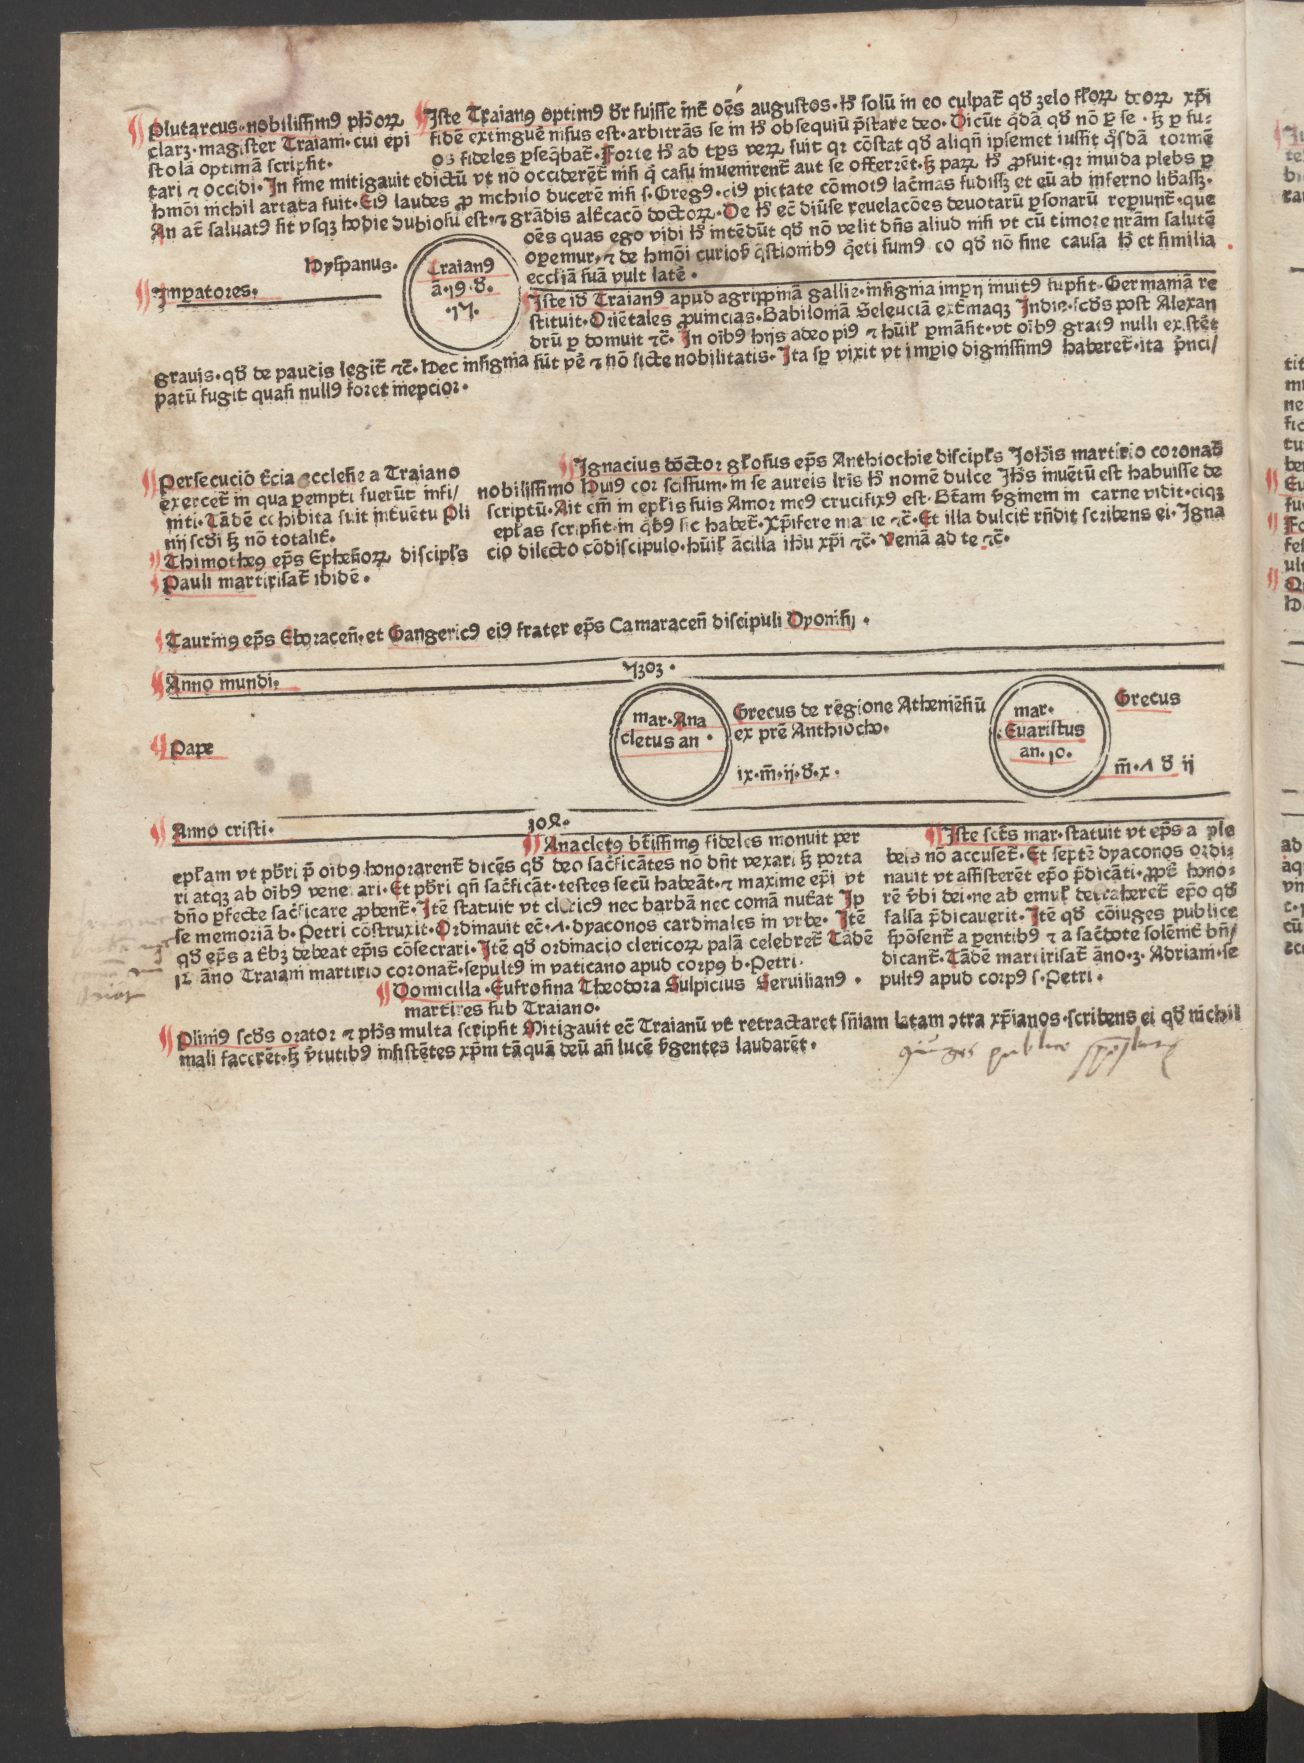 Plutarcus nobilissimꝰ ph̄oꝝ
claꝝ. magister Traiani. cui epi
stolā optimā scripsit.
Iste Traianꝰ optimꝰ dr̄ fuisse int̄ oēs augustos. hꝰ solū in eo culpat̄ qđ zelo fl̄oꝝ deoꝝ xp̄i
fidē extinguē nisus est. arbitrās se in hꝰ obsequiū p̄stare deo. Dicūt q̄dā qđ nō ꝑ se. hꝫ ꝑ su-
os fideles ꝑseq̄bat̄. Forte hꝰ ad tp̄s veꝝ fuit qꝛ cōstat qđ aliqñ ipsemet iussit q̄sdā tormē
tari ⁊ occidi. In fine mitigavit edictū vt nō occiderēt̄ nisi q̄ casu invenirent̄ aut se offerrēt. hꝫ paꝝ hꝰ ꝓfuit. qꝛ invida plebs ꝑ
hmōi nichil artata fuit. Eiꝰ laudes ꝓ nichilo ducerē nisi s. Gregꝰ. eiꝰ pietate cōmotꝰ lac̄mas fudissꝫ et eū ab inferno lib̄assꝫ.
An aūt saluatꝰ sit vsqꝫ hodie dubiosū est. ⁊ grādis alt̄cacō doctoꝝ. De hꝰ ec̄ diūse revelacōes devotarū ꝑsonarū reꝑiunt̄. que
oēs quas ego vidi hꝰ intēdūt qđ nō velit dn̄s aliud nisi vt cū timore nr̄am salutē
oꝑemur. ⁊ de hmōi curioſ q̄stionibꝰ q̄eti simꝰ eo qđ nō sine causa hꝰ et similia
eccliā suā vult latē.
Hyspanus.
Traianꝰ
ā. 19. đ.
. 17.
Inꝑatores.
Iste id Traianꝰ apud agrippinā gallie. insignia impij invitꝰ supsit. Germaniā re
stituit. Oriētales ꝓvincias. Babiloniā Seleuciā ext̄maqꝫ Indie. scđs post Alexan
drū ꝑdomuit ⁊c̄. In oibꝰ hijs adeo piꝰ ⁊ hūil̄ ꝑmāsit. vt oibꝰ gratꝰ nulli existēs
gravis. qđ de paucis legit̄ ⁊c̄. Hec insignia sūt vē ⁊ nō ficte nobilitatis. Ita sꝑ vixit vt imꝑio dignissimꝰ haberet̄. ita p̄nci/
patū fugit quasi nullꝰ foret inepcior.
Persecucio t̄cia ecclesie a Traiano
exercet̄ in qua ꝑempti fuerūt infi/
niti. Tādē cohibita fuit int̄uētu Pli
nij scđi hꝫ nō totalit̄.
Timotheꝰ ep̄s Ephesioꝝ discipl̄s
Pauli martirisat̄ ibidē.
Ignacius doctor gl̄osus ep̄s Anthiochie discipl̄s Joh̄is martirio coronat̄
nobilissimo Huiꝰ cor scissum. in se aureis lr̄is hꝰ nomē dulce Jh̄s invētū est habuisse de
scriptū. Ait em̄ in epl̄is suis Amor meꝰ crucifixꝰ est. Bt̄am v̄ginem in carne vidit. eiqꝫ
epl̄as scripsit. in q̄bꝰ sic habet̄. Xp̄ifere marie ⁊c̄. Et illa dulcit̄ rn̄dit scribens ei. Igna
cio dilecto cōdiscipulo. hūil̄ ācilla ihū xp̄i ⁊c̄. Veniā ad te ⁊c̄.
Taurinꝰ ep̄s Eboracen̄. et Gangericꝰ eiꝰ frater ep̄s Camaracen̄ discipuli Dyonisij.
Anno mundi.
7303.
Pape
mar. Ana
cletus an
Grecus de regione Atheniēsiū
ex pr̄e Anthiocho.
ix. m̄. ij. đ. x.
mar.
Evaristus
an. 10.
Grecus
m̄. 7 đ ij
Anno cristi.
104.
Anacletꝰ bt̄issimꝰ fideles monuit per
epl̄am vt pb̄ri p̄ oibꝰ honorarent̄ dicēs qđ deo sac̄ficātes nō dn̄t vexari hꝫ porta
ri atqꝫ ab oibꝰ venerari. Et pb̄ri qn̄ sac̄ficāt. testes secū habeāt. ⁊ maxime ep̄i vt
dn̄o ꝑfecte sac̄ficare ꝓbent̄. Itē statuit vt clericꝰ nec barbā nec comā nut̄at Ip
se memoriā b. Petri cōstruxit. Ordinavit ec̄. 7. dyaconos cardinales in vrbe. Itē
qđ ep̄s a t̄bꝫ debeat ep̄is cōsecrari. Itē qđ ordinacio clericoꝝ palā celebret̄ Tādē
12 āno Traiani martirio coronat̄. sepultꝰ in vaticano apud corpꝰ b. Petri.
Iste sct̄s mar. statuit vt ep̄s a ple
beis nō accuset̄. Et septē dyaconos ordi-
navit vt assisterēt ep̄o p̄dicāti. ꝓpt̄ hono-
rē v̄bi dei. ne ab emul̄ detraheret̄ ep̄o qđ
falsa p̄dicaverit. Itē qđ cōiuges publice
sp̄osent̄ a ꝑentibꝰ ⁊ a sac̄dote solēnit̄ bn̄/
dicant̄. Tādē martirisat̄ āno. 3. Adriani. se
pultꝰ apud corpꝰ s. Petri.
Domicilla. Eufrosina Theodora Sulpicius Servilianꝰ.
martires sub Traiano.
Pliniꝰ scđs orator ⁊ ph̄s multa scripsit Mitigavit ec̄ Traianū vt retractaret sn̄iam latam ꝯtra xp̄ianos. scribens ei qđ nichil
mali facerēt. hꝫ v̄tutibꝰ insistētes xp̄m tāquā deū an̄ lucē v̄gentes laudarēt.